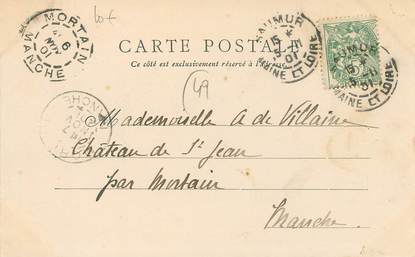 10 €
MORTAIN
MANCHE
SAUMUR
MAINE ET LOIRE
SAUMUR
MAINE ET LOIRE
CARTE POSTALE
Ce côté est exclusivement réservé à
49
Mademoiselle A de Villaine
Château de St Jean
par Mortain
Manche